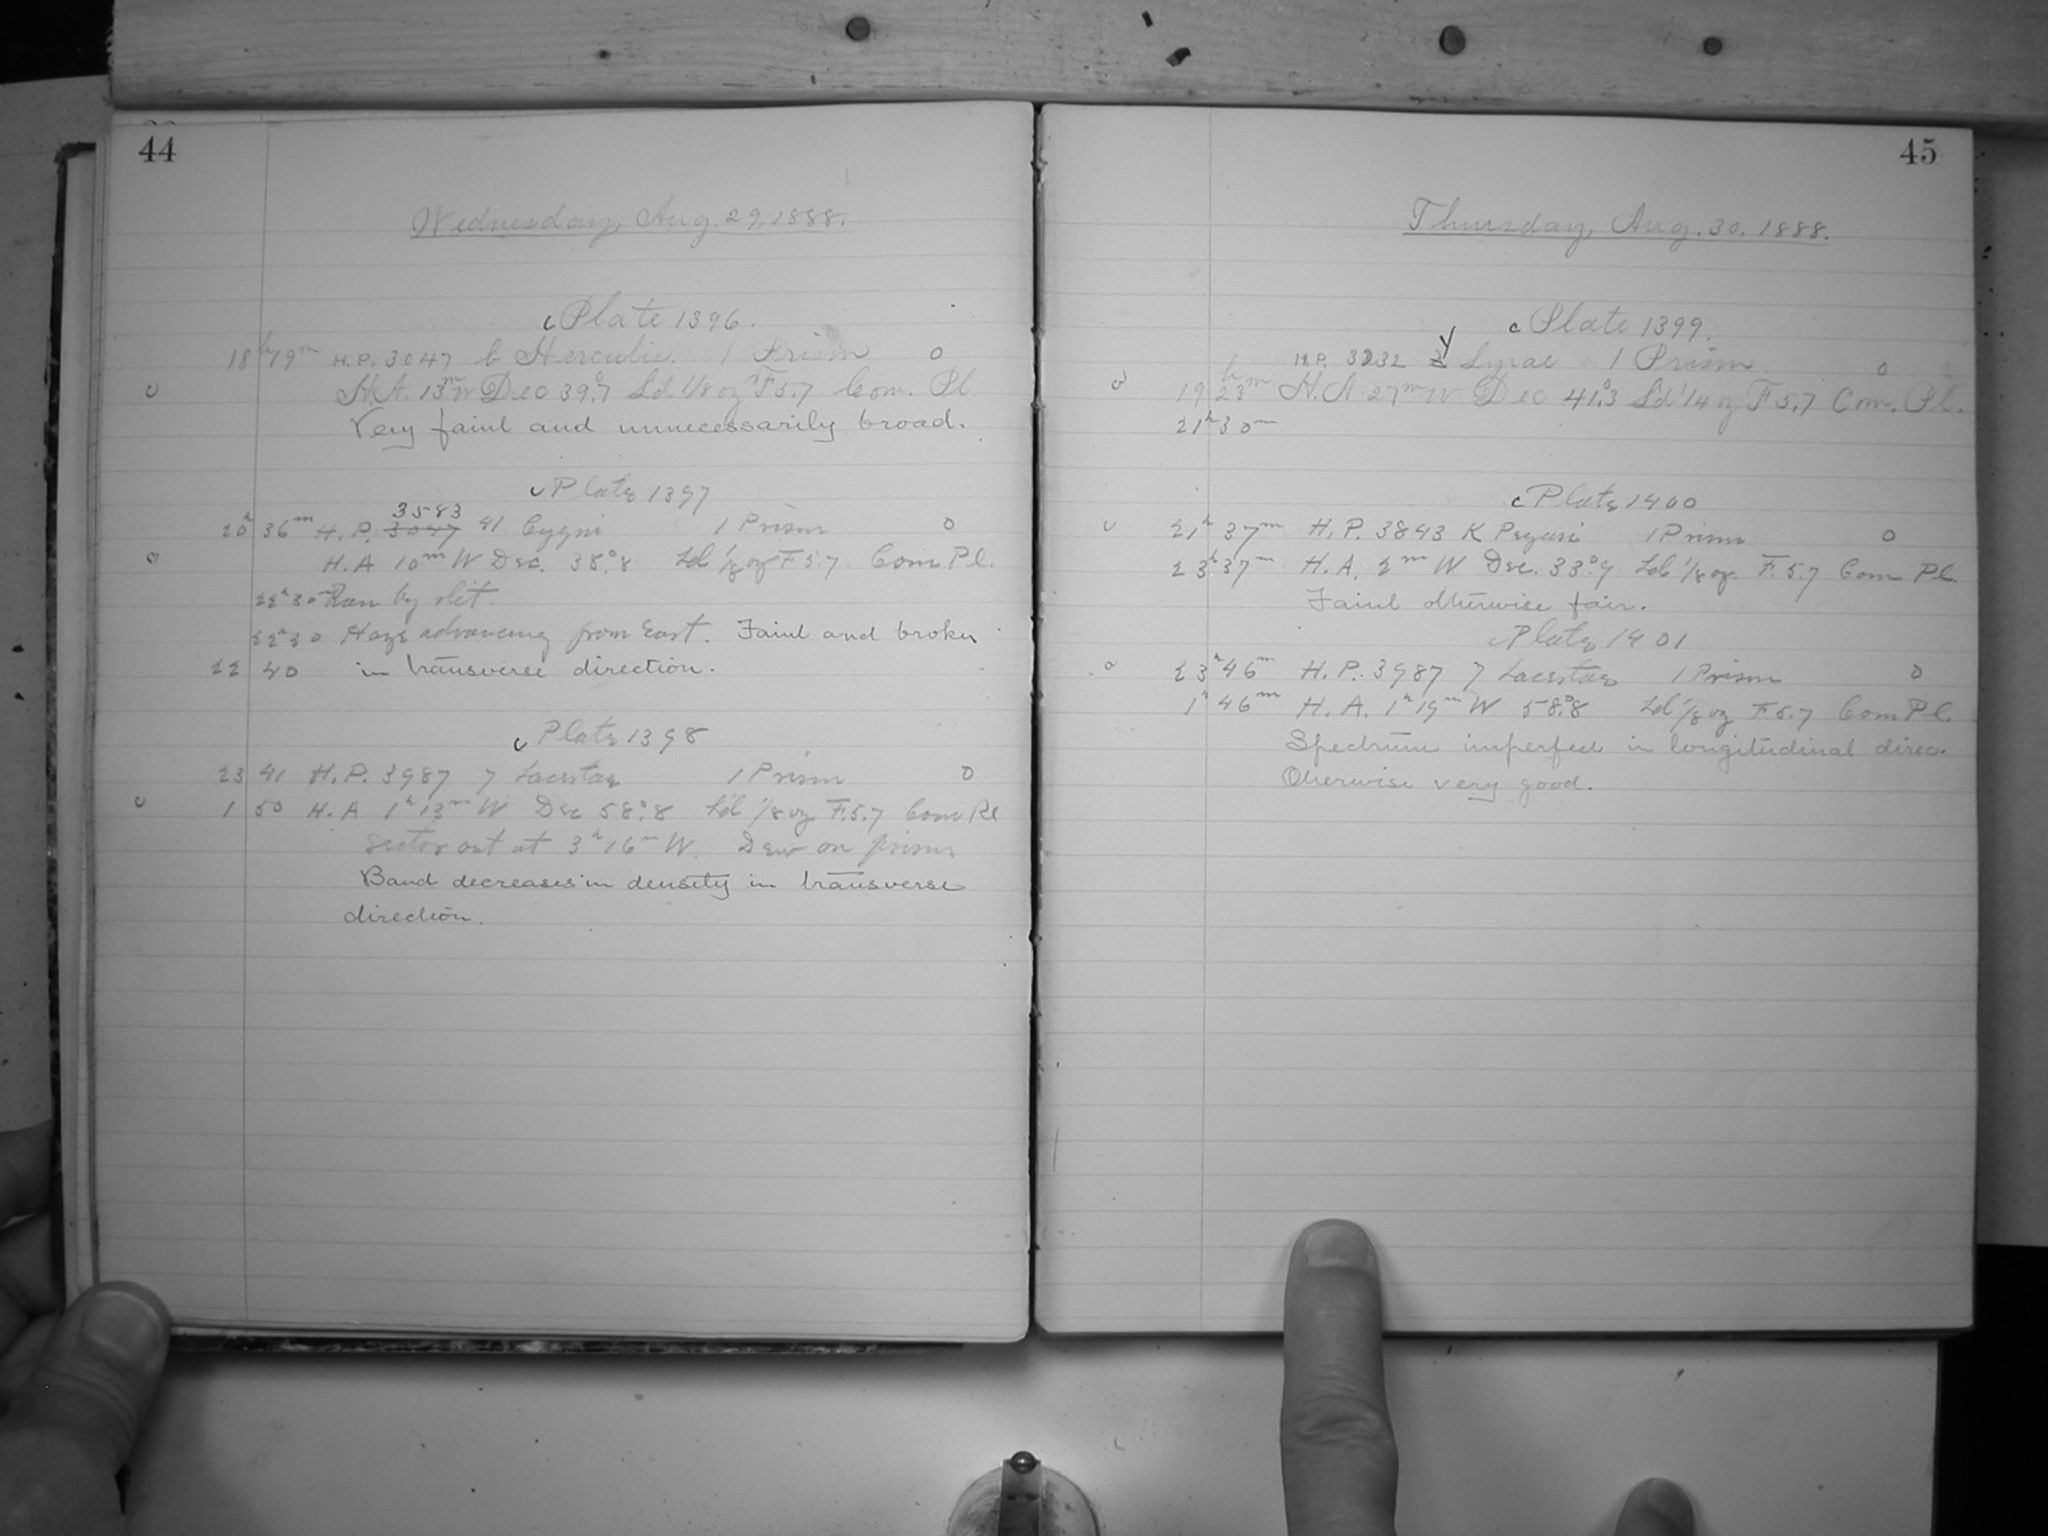 44
Wednesday, Aug. 29, 1888.
c Plate 1396.
18h 19m H.P. 3047 b Herculis. 1 Prism o
H.A. 13m W Dec 39°.7 Ld 1/8 oz F 5.7 Com. Pl.
Very faint and unnecessarily broad.
c Plate 1397
3583
20h 36m H.P. 3047 41 Cygni 1 Prism o
H.A 10m W Dec. 38°.8 Ld 1/8 oz F 5.7 Com Pl.
22h 30m Ran by slit.
22h 30 Haze advancing from East. Faint and broken
22 40 in transverse direction.
c Plate 1398
23 41 H.P. 3987 7 Lacertae 1 Prism o
1 50 H.A 1h 13m W Dec 58°.8 Ld 1/8 oz F.5.7 Com Pl
Sector out at 3h 16m W. Dew on prism
Band decreases in density in transverse
direction.
45
Thursday, Aug. 30. 1888.
c Plate 1399.
H.P. 3232 γ Lyrae 1 Prism o
19h 23m H.A 27m W Dec 41°.3 Ld 1/4 oz F 5.7 Com. Pl.
21h 30m
c Plate 1400
21h 37m H.P. 3843 K Pegasi 1 Prism o
23h 37m H.A. 2m W Dec. 33°.9 Ld 1/8 oz. F. 5.7 Com Pl.
Faint otherwise fair.
Plate 1401
23h 46m H.P. 3987 7 Lacertae 1 Prism o
1h 46m H.A. 1h 19m W 58°.8 Ld 1/8 oz F 5.7 Com Pl.
Spectrum imperfect in longitudinal direc.
Otherwise very good.